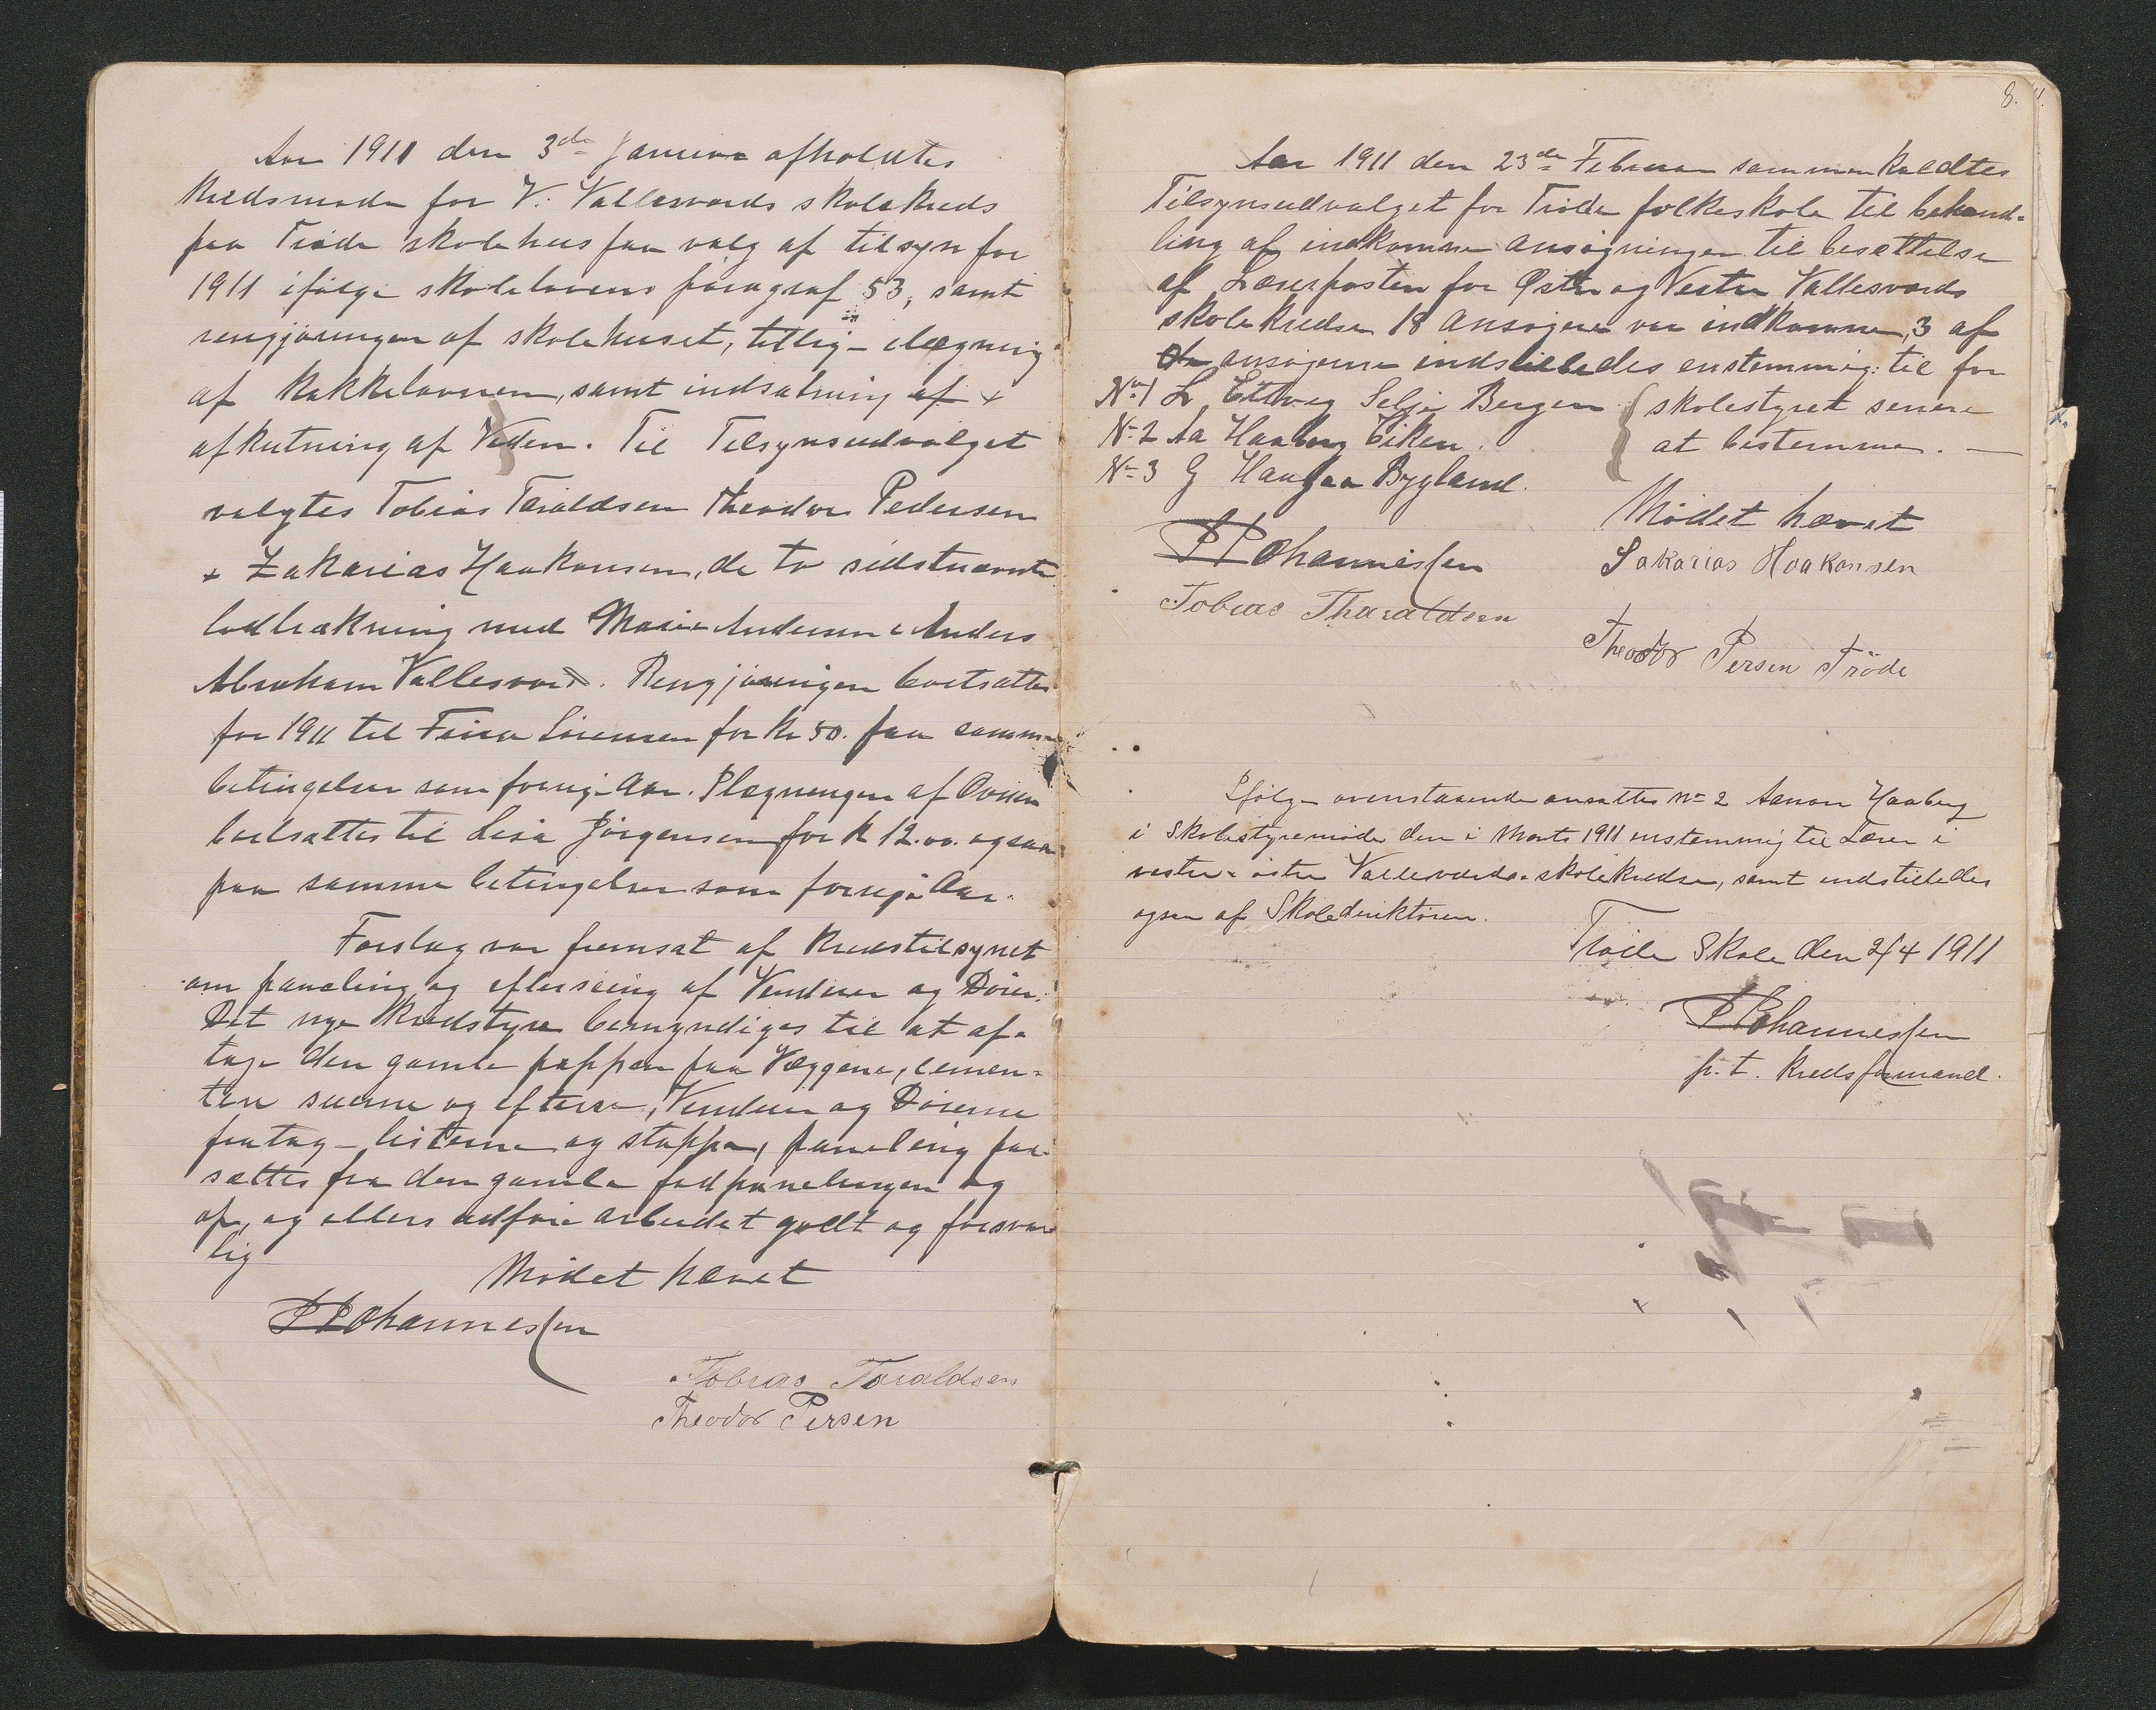 Aar 1911 den 3de Januar afholdtes
Kredsmøde for V. Vallesværds skolekreds
paa Trøde skolehus paa valg af tilsyn for
1911 ifølge skolelovens paragraf 53, samt
rengjøringen af skolehuset, tillig ilægning
af Kakkelovnen, samt indsætning af +
afkutning af Veden. Til Tilsynsudvalget
valgtes Tobias Taraldsen Theodor Pedersen
+ Zakarias Haakonsen, de to sidstnævnte
lodtrækning med Marie Andersen & Anders
Abraham Vallesværd. Rengjøringen bortsattes
for 1911 til Fina Sørensen for Kr 50. paa samme
betingelser som forrige Aar. Ilægningen af Ovnen
bortsattes til Lisa Jørgensen for K 12.00. ogsaa
paa samme betingelser som forrige Aar.
Forslag var fremsat af Kredstilsynet
om paneling og efterseing af Venduer og Dører.
Det nye Kredstyre bemyndiges til at af-
tage den gamle pappen paa Væggene, semen-
tere muerne og efterse, Venduer og Dørerne
fratag listerne og stoppe, paneling paa-
sættes fra den gamle fodpanelingen og
op, og ellers udføre arbeidet godt og forsvar
lig
Mødet hævet
P P Johannessen
Tobias Taraldsen
Theodor Persen
8.
Aar 1911 den 23de Februar sammenkaldtes
Tilsynsudvalget for Trøde folkeskole til behand-
ling af indkomne Ansøgninger til besættelse
af Lærerposten for Østre og Vestre Vallesværds
skolekredse 18 Ansøgere var indkomne, 3 af
de ansøgerne indstilledes enstemmig til for
No 1 L Selje Bergen { skolestyret senere
No 2 Aa Haaberg Eiken. at bestemme. —
No 3 G Haugaa Bygland.
Mødet hævet
P P Johannessen
Sakarias Haakonsen
Tobias Tharaldsen
Theodor Persen Tröde
Ifølge ovenstaaende ansattes No 2 Aanon Haaberg
i Skolestyremøde den i Marts 1911 enstemmig til Lærer i
vestre & østre Vallesværds skolekredse, samt indstilledes
ogsaa af Skoledirektøren.
Trøde Skole den 2/4 1911
P P Johannessen
p. t. Kredsformand.